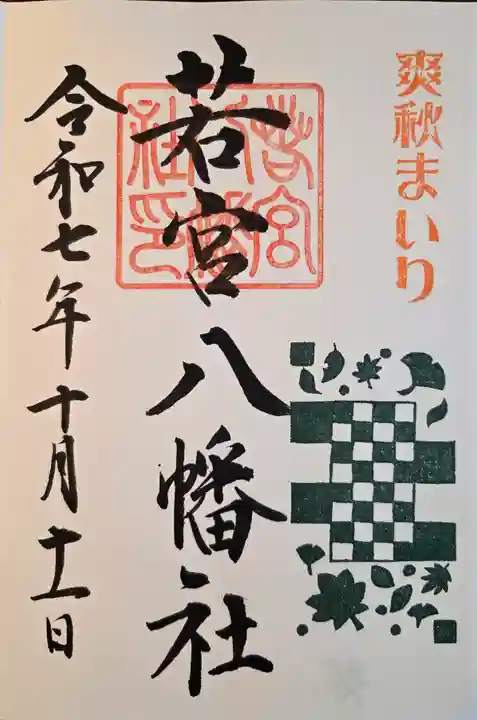 爽秋まいり
若宮八幡社
若宮八幡社印
令和七年十月十一日